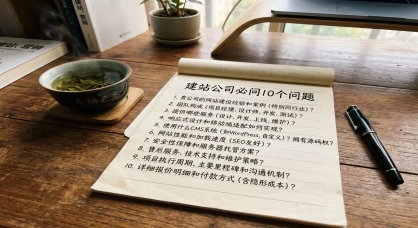 建站公司必问10个问题
1. 贵公司的网站建设经验和案例(特别同行业)?
2. 团队构成(项目经理、设计师、开发、测试)?
3. 提供哪些服务(设计、开发、上线、维护)?
4. 响应式设计和移动端适配如何实现?
5. 使用什么CMS系统(如WordPress、自定义)?拥有源码权?
6. 网站性能和加载速度(SEO友好)?
7. 安全性保障和服务器托管方案?
8. 售后服务、技术支持和维护策略?
9. 项目执行周期、主要里程碑和沟通机制?
10. 详细报价明细和付款方式(含隐形成本)?